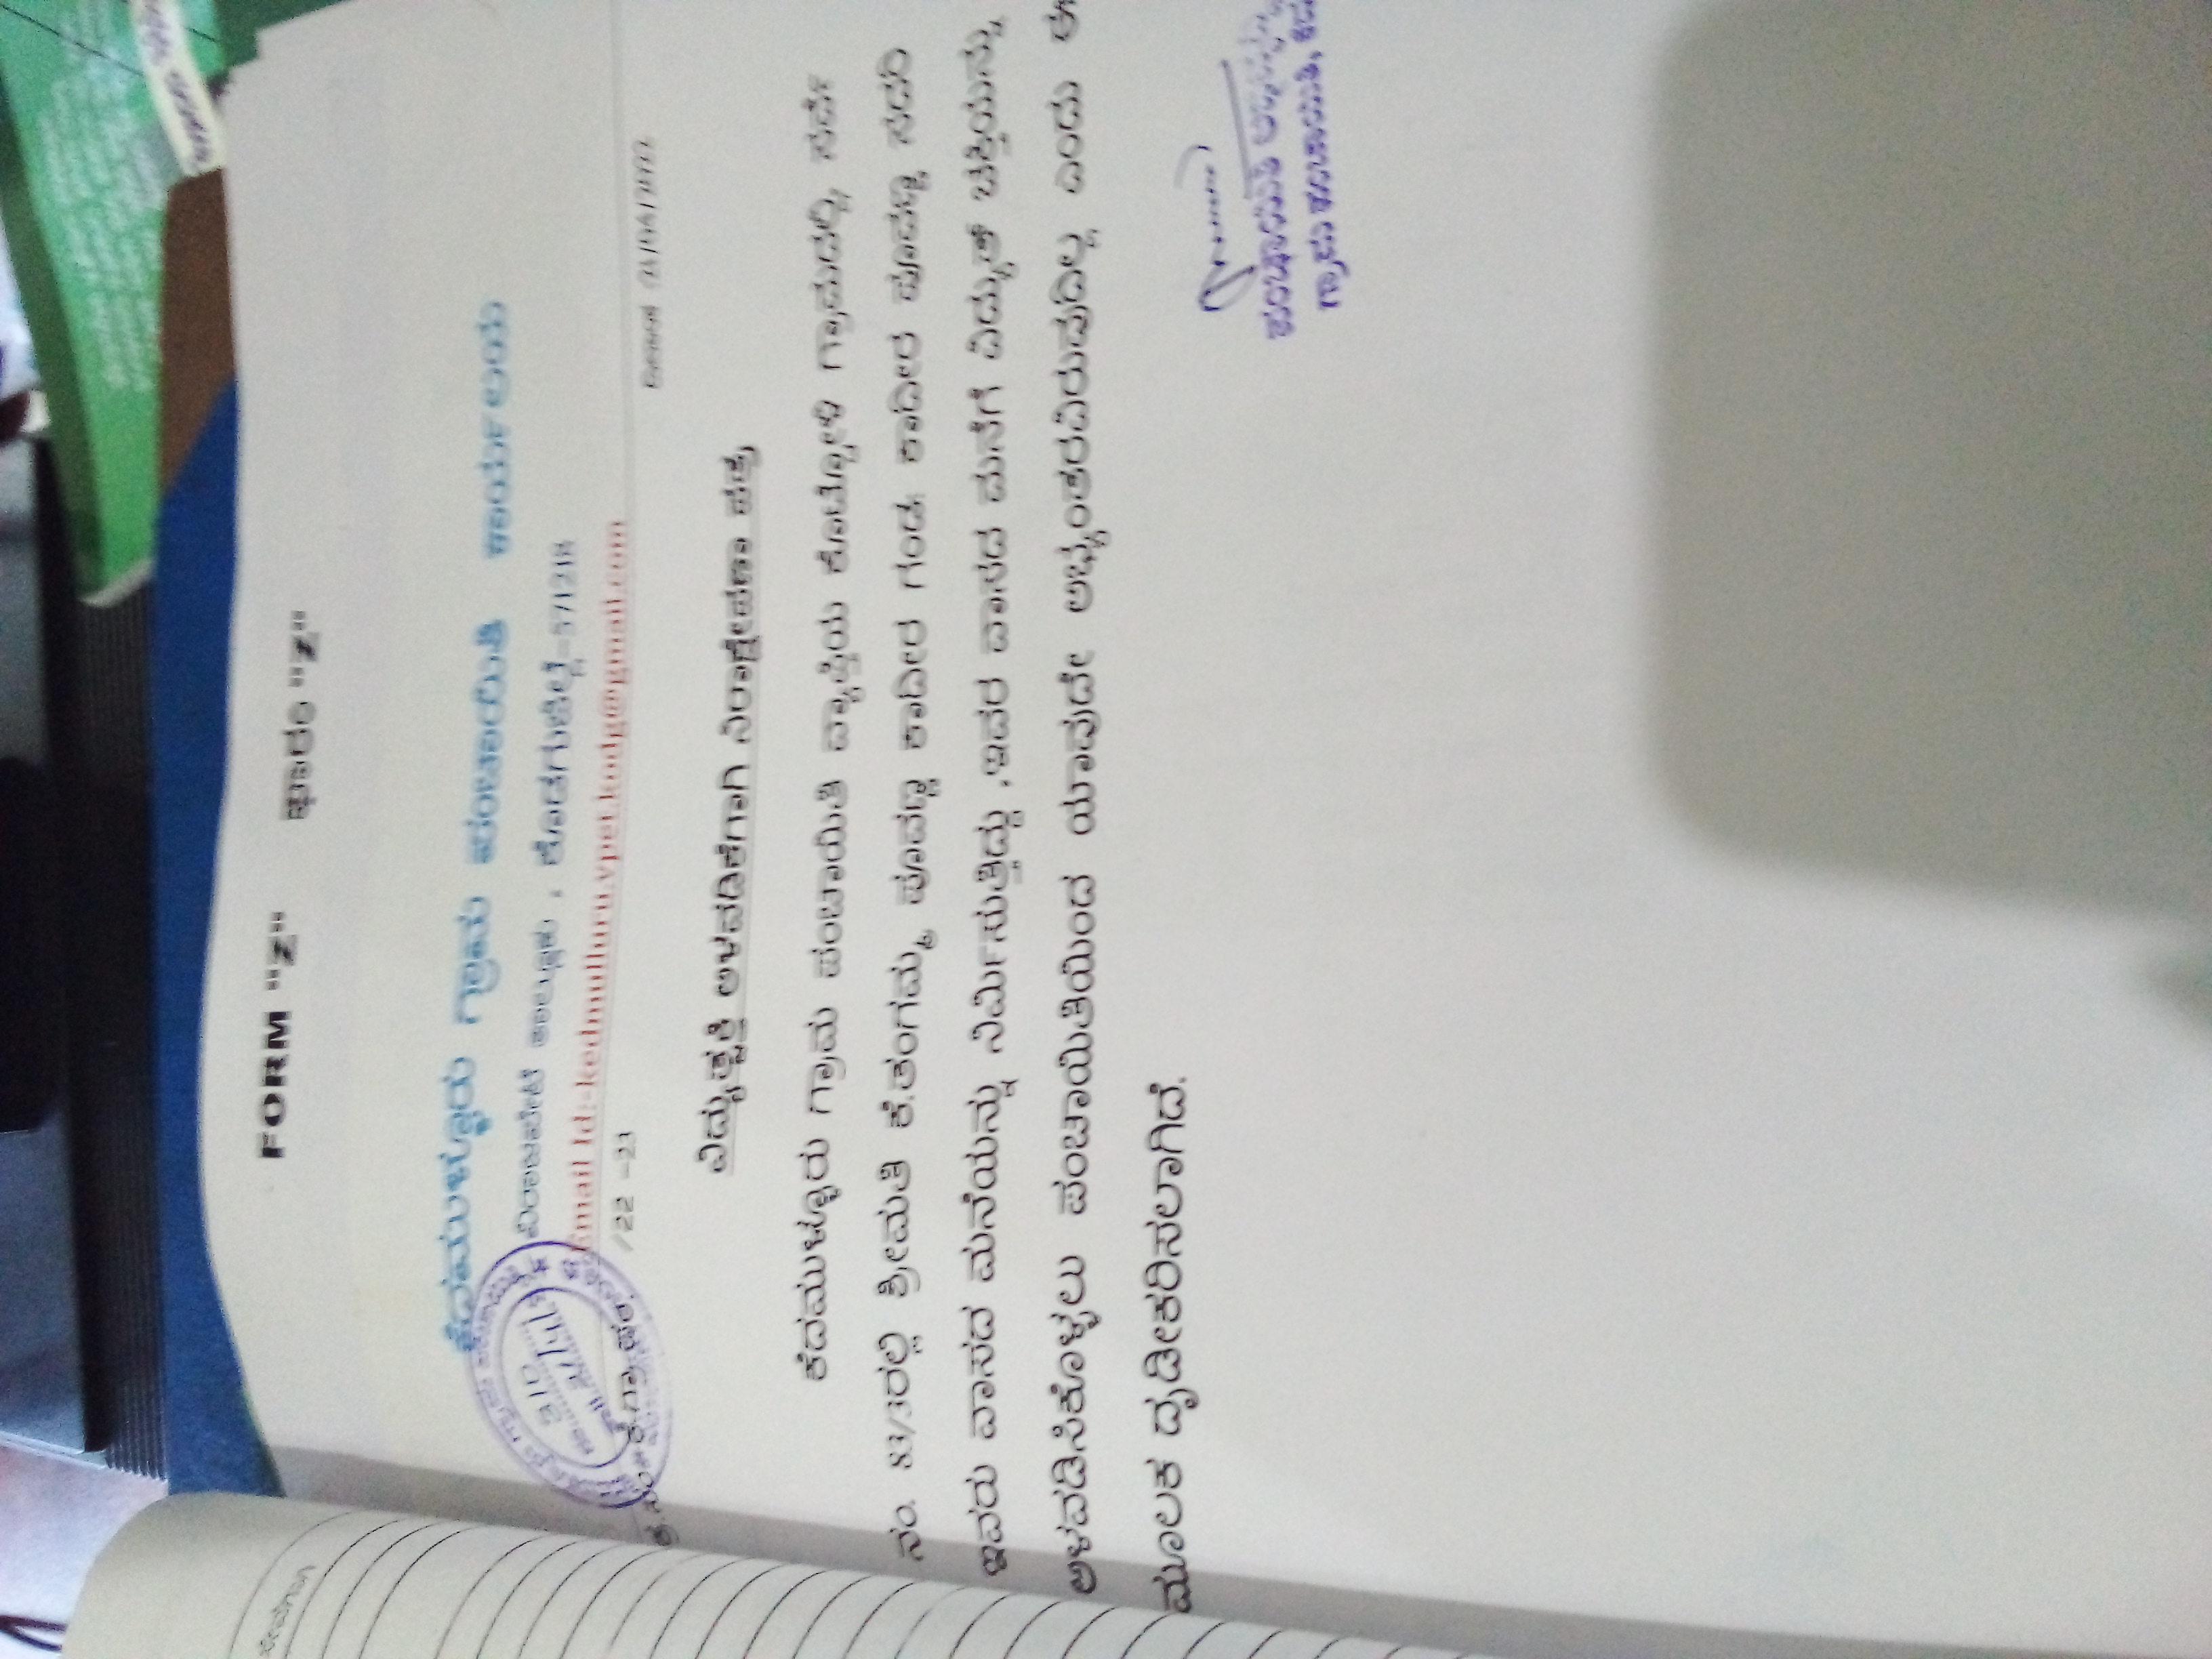 FORM "Z" ಫಾರಂ "Z"
ಕೆದಮುಳ್ಳೂರು ಗ್ರಾಮ ಪಂಚಾಯಿತಿ ಕಾರ್ಯಾಲಯ
ವಿರಾಜಪೇಟೆ ತಾಲ್ಲೂಕು , ಕೊಡಗುಜಿಲ್ಲೆ-571218
Email Id:-kedmulluru.vpet.kodg@gmail.com
/22 -23
ದಿನಾಂಕ
ವಿದ್ಯುಚ್ಛಕ್ತಿ ಅಳವಡಿಕೆಗಾಗಿ ನಿರಾಕ್ಷೇಪಣಾ ಪತ್ರ
ಕೆದಮುಳ್ಳೂರು ಗ್ರಾಮ ಪಂಚಾಯಿತಿ ವ್ಯಾಪ್ತಿಯ ಕೊಟ್ಟೋಳಿ ಗ್ರಾಮದಲ್ಲಿ ಸರ್ವೆ
ನಂ. 83/3ರಲ್ಲಿ ಶ್ರೀಮತಿ ಕೆ.ತಂಗಮ್ಮ ಪೂವಣ್ಣ ಕಾವೇರ ಗಂಡ ಕಾವೇರ ಪೂವಣ್ಣ ಸದರಿ
ಇವರು ವಾಸದ ಮನೆಯನ್ನು ನಿರ್ಮಿಸುತ್ತಿದ್ದು ,ಇವರ ವಾಸದ ಮನೆಗೆ ವಿದ್ಯುತ್ ಶಕ್ತಿಯನ್ನು
ಅಳವಡಿಸಿಕೊಳ್ಳಲು ಪಂಚಾಯಿತಿಯಿಂದ ಯಾವುದೇ ಅಭ್ಯಂತರವಿರುವುದಿಲ್ಲ ಎಂದು ಈ
ಮೂಲಕ ಧೃಡೀಕರಿಸಲಾಗಿದೆ.
ಪಂಚಾಯಿತಿ
ಗ್ರಾಮ ಪಂಚಾಯಿತಿ,